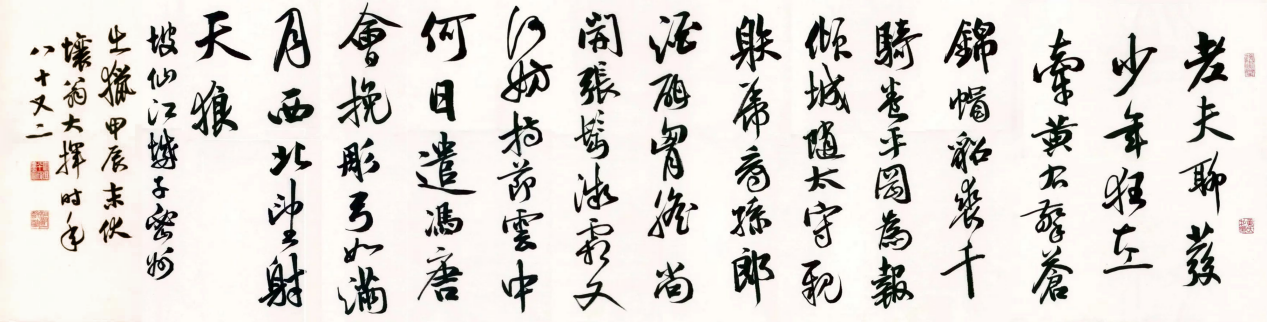 老夫聊發
少年狂左
牽黃右擎蒼
錦帽貂裘千
騎卷平岡為報
傾城隨太守親
射虎看孫郎
酒酣胸膽尚
開張鬢微霜又
何妨持節雲中
何日遣馮唐
會挽彫弓如滿
月西北望射
天狼
坡仙江城子密州
出獵甲辰末伏
壤翁大揮時年
八十又二